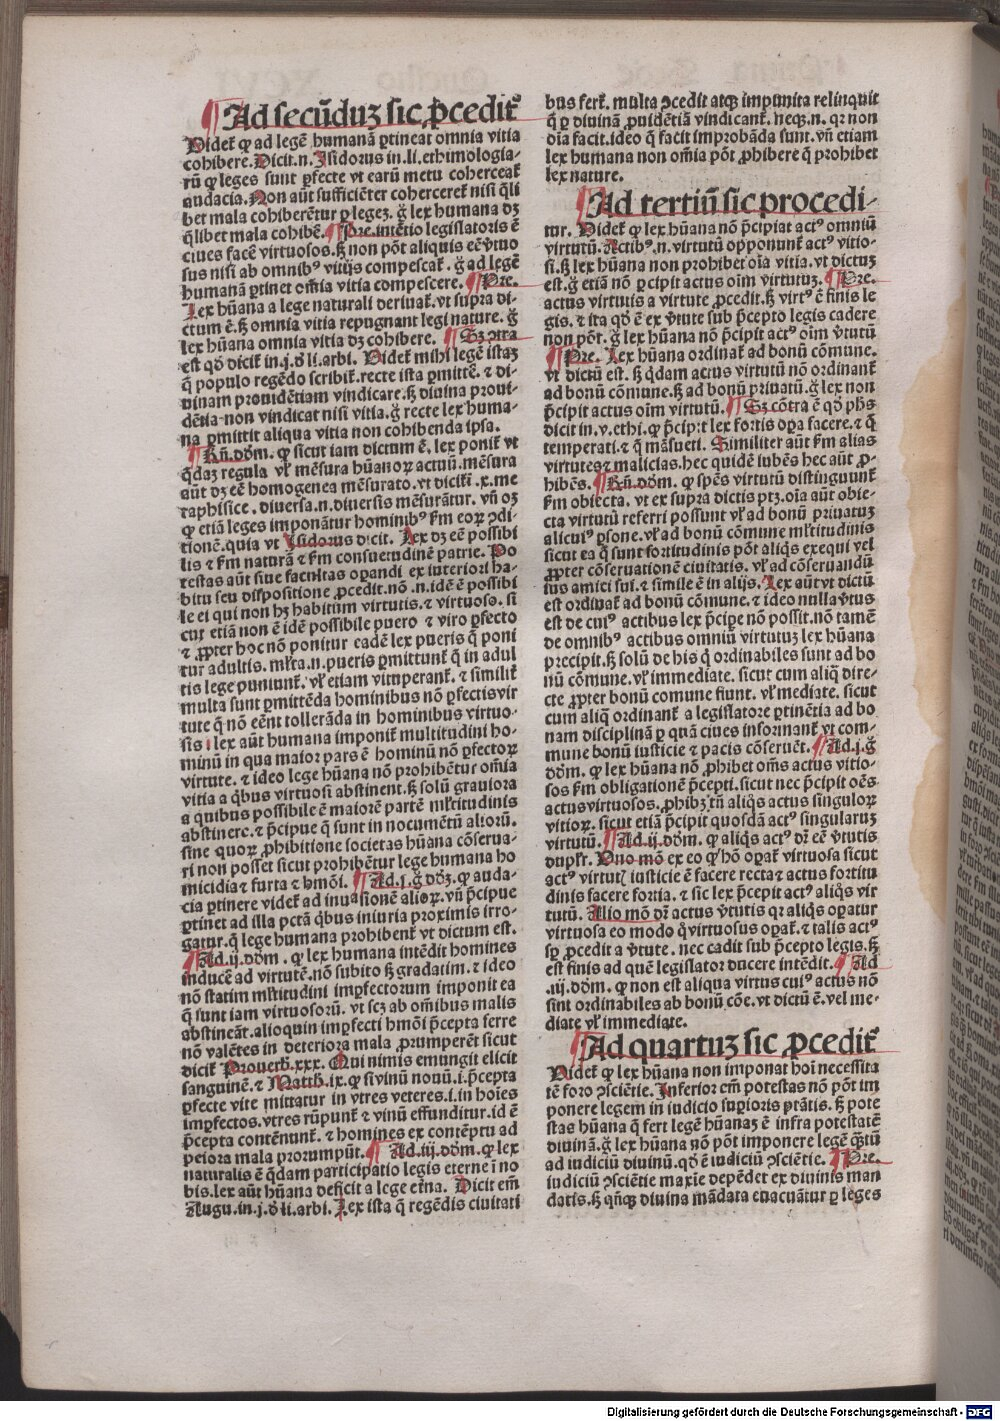 Ad secūduꝫ sic ꝓcedit᷑
Videt᷑ ꝙ ad legē humanā ꝑtineat omnia vitia
cohibere. Dicit.n. Isidorus in.li.ethimologia-
rū ꝙ leges sunt ꝑfecte vt earū metu coherceat᷑
audacia. Non aūt sufficiēter coherceret nisi q̄li
bet mala cohiberēt᷑ ꝑ legeꝫ. g̊ lex humana dꝫ
q̄libet mala cohibē. ¶ Pre. intētio legislatoris ē
ciues facē virtuosos. sꝫ non pōt aliquis eē v̄tuo
sus nisi ab omnibꝰ vitijs compescat᷑. g̊ ad legē
humanā ꝑtinet oīa vitia compescere. ¶ Pre.
Lex hūana a lege naturali deriuat᷑. vt supra di-
ctum ē. sꝫ omnia vitia repugnant legi nature. g̊
lex hūana omnia vitia dꝫ cohibere. ¶ Sꝫ ꝯtra
est qđ dicit᷑ in.j.đ li.arbi. Videt᷑ mihi legē istaꝫ
q̄ populo regēdo scribit᷑. recte ista ꝑmittē. ⁊ di-
uinam prouidētiam vindicare. sꝫ diuina proui-
dētia non vindicat nisi vitia. g̊ recte lex huma-
na ꝑmittit aliqua vitia non cohibenda ipsa.
¶ Rn̄.dōm. ꝙ sicut iam dictum ē. lex ponit᷑ vt
q̄daꝫ regula vl̓ mēsura hūanoꝝ actuū. mēsura
aūt dꝫ eē homogenea mēsurato. vt dicit᷑ i.x.me
taphisice. diuersa.n.diuersis mēsurāt᷑. vn̄ oꝫ
ꝙ etiā leges imponāt᷑ hominibꝰ ẜm eoꝝ ꝯdi-
tionē. quia vt Isidorus dicit. Lex dꝫ eē possibi
lis ⁊ ẜm naturā ⁊ ẜm consuetudinē patrie. Po
testas aūt siue facultas oꝑandi ex interiori ha-
bitu seu dispositione ꝓcedit. nō .n. idē ē possibi
le ei qui non hꝫ habitum virtutis. ⁊ virtuoso. si
cut etiā non ē idē possibile puero ⁊ viro ꝑfecto
⁊ ꝓpter hoc nō ponit᷑ eadē lex pueris q̄ poni
tur adultis. ml̓ta.n. pueris ꝑmittunt᷑ q̄ in adul
tis lege puniunt᷑. vl̓ etiam vituperant᷑. ⁊ similit᷑
multa sunt ꝑmittēda hominibus nō ꝑfectis vir
tute q̄ nō eēnt tollerāda in hominibus virtuo-
sis. lex aūt humana imponit᷑ multitudini ho-
minū in qua maior pars ē hominū nō ꝑfectoꝝ
virtute. ⁊ ideo lege hūana nō prohibēt᷑ om̄ia
vitia a qbꝰ virtuosi abstinent. sꝫ solū grauiora
a quibus possibile ē maiorē partē ml̓titudinis
abstinere. ⁊ p̄cipue q̄ sunt in nocumētū alioꝝ.
sine quoꝝ ꝓhibitione societas hūana cōserua-
ri non posset sicut prohibēt᷑ lege humana ho
micidia ⁊ furta ⁊ hm̄oi. ¶ Ad.j.g̊ dōꝫ. ꝙ auda-
cia ꝑtinere videt᷑ ad inuasionē alioꝝ. vn̄ p̄cipue
ꝑtinet ad illa pctā qbꝰ iniuria proximis irro-
gatur. q̄ lege humana prohibent᷑ vt dictum est.
¶ Ad.ij.dōm. ꝙ lex humana intēdit homines
inducē ad virtutē. nō subito sꝫ gradatim. ⁊ ideo
nō statim ml̓titudini imꝑfectorum imponit ea
q̄ sunt iam virtuosorū. vt scꝫ ab om̄ibus malis
abstineāt. alioquin imꝑfecti hm̄oi p̄cepta ferre
nō valētes in deteriora mala ꝓrumperēt sicut
dicit᷑ Prouerb̓.xxx. Qui nimis emungit elicit
sanguinē. ⁊ Matth̓.ix. ꝙ si vinū nouū.i.p̄cepta
ꝑfecte vite mittatur in vtres veteres.i.in hoīes
imꝑfectos. vtres rūpunt᷑ ⁊ vinū effunditur. id ē
p̄cepta contēnunt᷑. ⁊ homines ex contēptu ad
peiora mala prorumpūt. ¶ Ad.iij.dōm. ꝙ lex
naturalis ē q̄dam participatio legis eterne ī no
bis. lex aūt hūana deficit a lege et̓na. Dicit em̄
Augu.in.j.đ li.arbi. Lex ista q̄ regēdis ciuitati
bus fert᷑. multa ꝯcedit atqꝫ impunita relinquit
q̄ ꝑ diuinā ꝓuidētiā vindicant᷑. neqꝫ.n. qꝛ non
oīa facit. ideo q̄ facit improbāda sunt. vn̄ etiam
lex humana non om̄ia pōt ꝓhibere q̄ prohibet
lex nature.
¶ Ad tertiū sic procedi-
tur. Videt᷑ ꝙ lex hūana nō p̄cipiat actꝰ omniū
virtutū. Actibꝰ.n. virtutū opponunt᷑ actꝰ vitio-
si. sꝫ lex hūana non prohibet oīa vitia. vt dictuꝫ
est. g̊ etiā nō p̄cipit actus oīm virtutuꝫ. ¶ Pre.
actus virtutis a virtute ꝓcedit. sꝫ virtꝰ ē finis le
gis. ⁊ ita qđ ē ex v̄tute sub p̄cepto legis cadere
non pōt. g̊ lex hūana nō p̄cipit actꝰ oīm v̄tutū
¶ Pre. Lex hūana ordinat᷑ ad bonū cōmune.
vt dictū est. sꝫ q̄dam actus virtutū nō ordinant᷑
ad bonū cōmune. sꝫ ad bonū priuatū. g̊ lex non
p̄cipit actus oīm virtutū. ¶ Sꝫ cōtra ē qđ phs̄
dicit in.v.ethi. ꝙ p̄cipit lex fortis oꝑa facere. ⁊ q̄
temperati. ⁊ q̄ māsueti. Similiter aūt ẜm alias
virtutes ⁊ malicias. hec quidē iubēs hec aūt ꝓ-
hibēs. ¶ Rn̄.dōm. ꝙ spēs virtutū distinguunt᷑
ẜm obiecta. vt ex supra dictis ptꝫ. oīa aūt obie-
cta virtutū referri possunt vl̓ ad bonū priuatuꝫ
alicuiꝰ ꝑsone. vl̓ ad bonū cōmune ml̓titudinis
sicut ea q̄ sunt fortitudinis pōt aliqs exequi vel
ꝓpter cōseruationē ciuitatis. vl̓ ad cōseruandū
ius amici sui. ⁊ simile ē in alijs. Lex aūt vt dictū
est ordinat᷑ ad bonū cōmune. ⁊ ideo nulla v̄tus
est de cuiꝰ actibus lex p̄cipe nō possit. nō tamē
de omnibꝰ actibus omniū virtutuꝫ lex hūana
precipit. sꝫ solū de his q̄ ordinabiles sunt ad bo
nū cōmune. vl̓ immediate. sicut cum aliq̄ dire-
cte ꝓpter bonū comune fiunt. vl̓ mediate. sicut
cum aliq̄ ordinant᷑ a legislatore ꝑtinētia ad bo
nam disciplinā ꝑ quā ciues informant᷑ vt com-
mune bonū iusticie ⁊ pacis cōseruēt. ¶ Ad.j.g̊
dōm. ꝙ lex hūana nō ꝓhibet om̄s actus vitio-
sos ẜm obligationē p̄cepti. sicut nec p̄cipit oēs
actus virtuosos. ꝓhibꝫ tn̄ aliqs actus singuloꝝ
vitioꝝ. sicut etiā p̄cipit quosdā actꝰ singularuꝫ
virtutū. ¶ Ad.ij.dōm. ꝙ aliqs actꝰ dr̄ eē v̄tutis
duplr̄. Uno mō ex eo ꝙ hō oꝑat᷑ virtuosa sicut
actꝰ virtutꝭ iusticie ē facere recta ⁊ actus fortitu
dinis facere fortia. ⁊ sic lex p̄cepit actꝰ aliqs vir
tutū. Alio mō dr̄ actus v̄tutis qꝛ aliqs oꝑatur
virtuosa eo modo q̊ virtuosus oꝑat᷑. ⁊ talis actꝰ
sꝑ ꝓcedit a v̄tute. nec cadit sub p̄cepto legis. sꝫ
est finis ad quē legislator ducere intēdit. ¶ Ad
.iij.dōm. ꝙ non est aliqua virtus cuiꝰ actus nō
sint ordinabiles ab bonū cōe. vt dictū ē. vel me-
diate vl̓ immediate.
¶ Ad quartuꝫ sic ꝓcedit᷑
Videt᷑ ꝙ lex hūana non imponat hoī necessita
tē foro ꝯsciētie. Inferior em̄ potestas nō pōt im
ponere legem in iudicio suꝑioris ptātis. sꝫ pote
stas hūana q̄ fert legē hūanaꝫ ē infra potestatē
diuinā. g̊ lex hūana nō pōt imponere legē q̄tū
ad iudiciū diuinū. qđ ē iudiciū ꝯsciētie. ¶ Pre.
iudiciū ꝯsciētie maxīe depēdet ex diuinis man
datis. sꝫ qn̄qꝫ diuina mādata euacuāt᷑ ꝑ leges
Digitalisierung gefördert durch die Deutsche Forschungsgemeinschaft - DFG